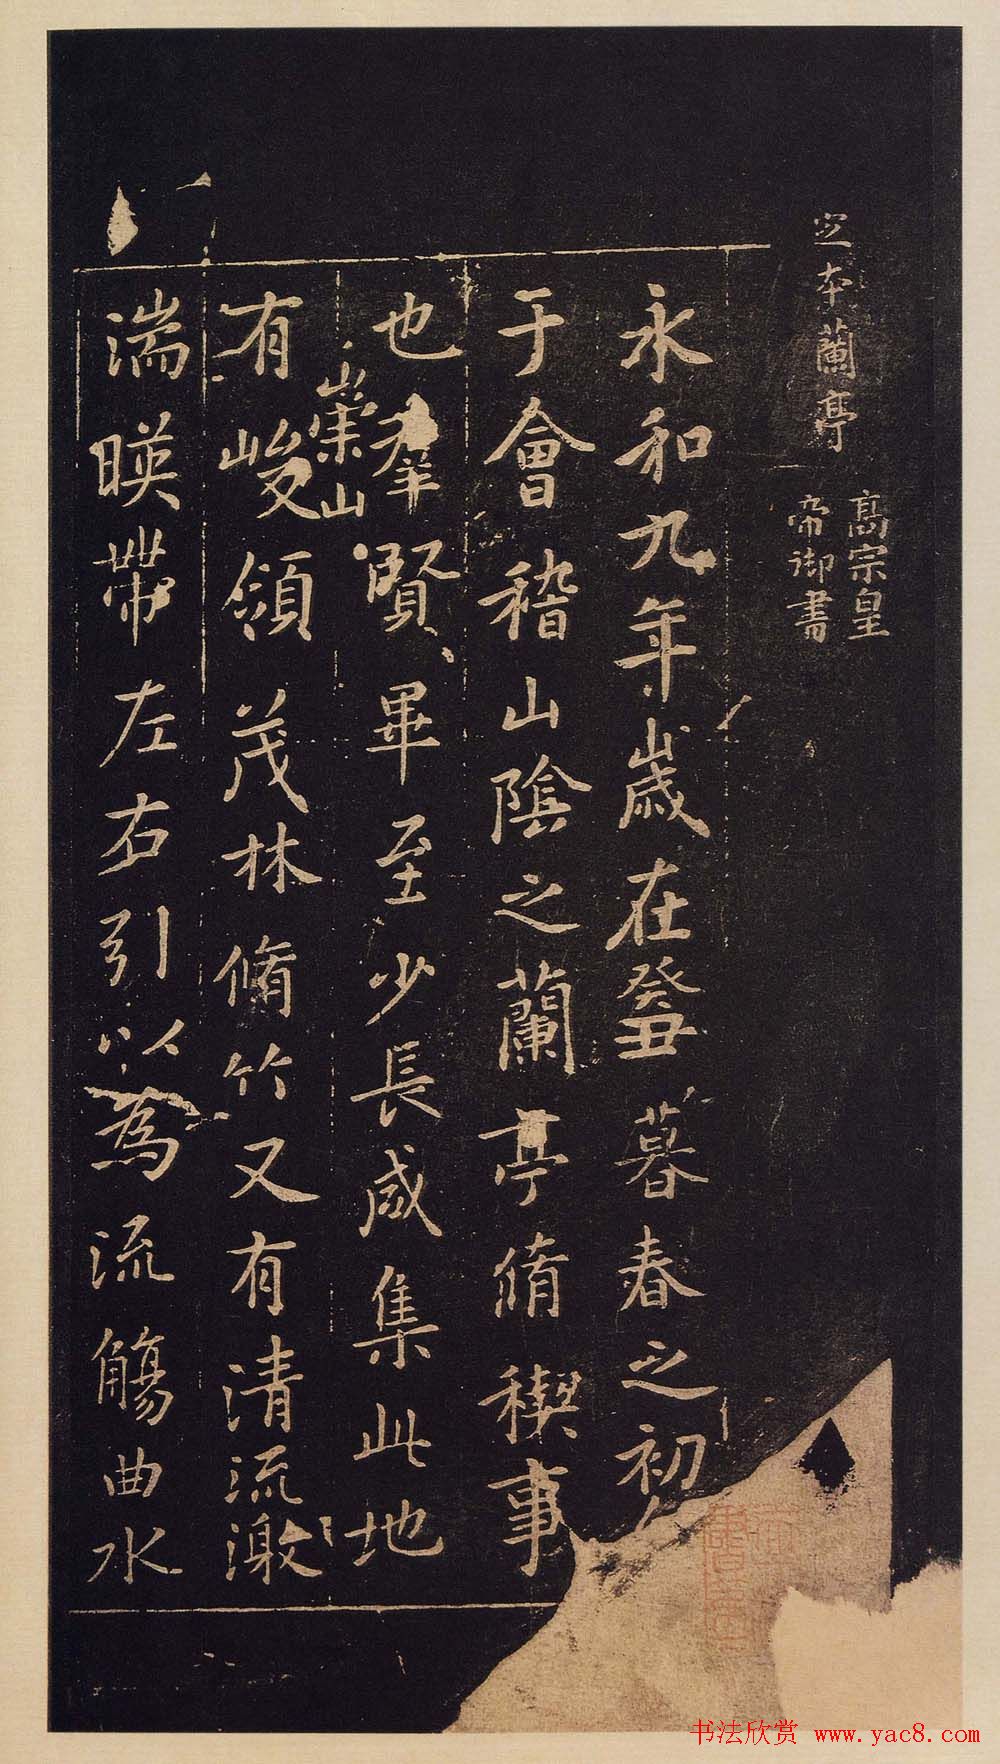 定本蘭亭
高宗皇
帝御書
永和九年歲在癸丑暮春之初
于會稽山陰之蘭亭脩稧事
也羣賢畢至少長咸集此地
崇山
有峻領茂林脩竹又有清流激
湍暎帶左右引以為流觴曲水
书法欣赏 www.yac8.com